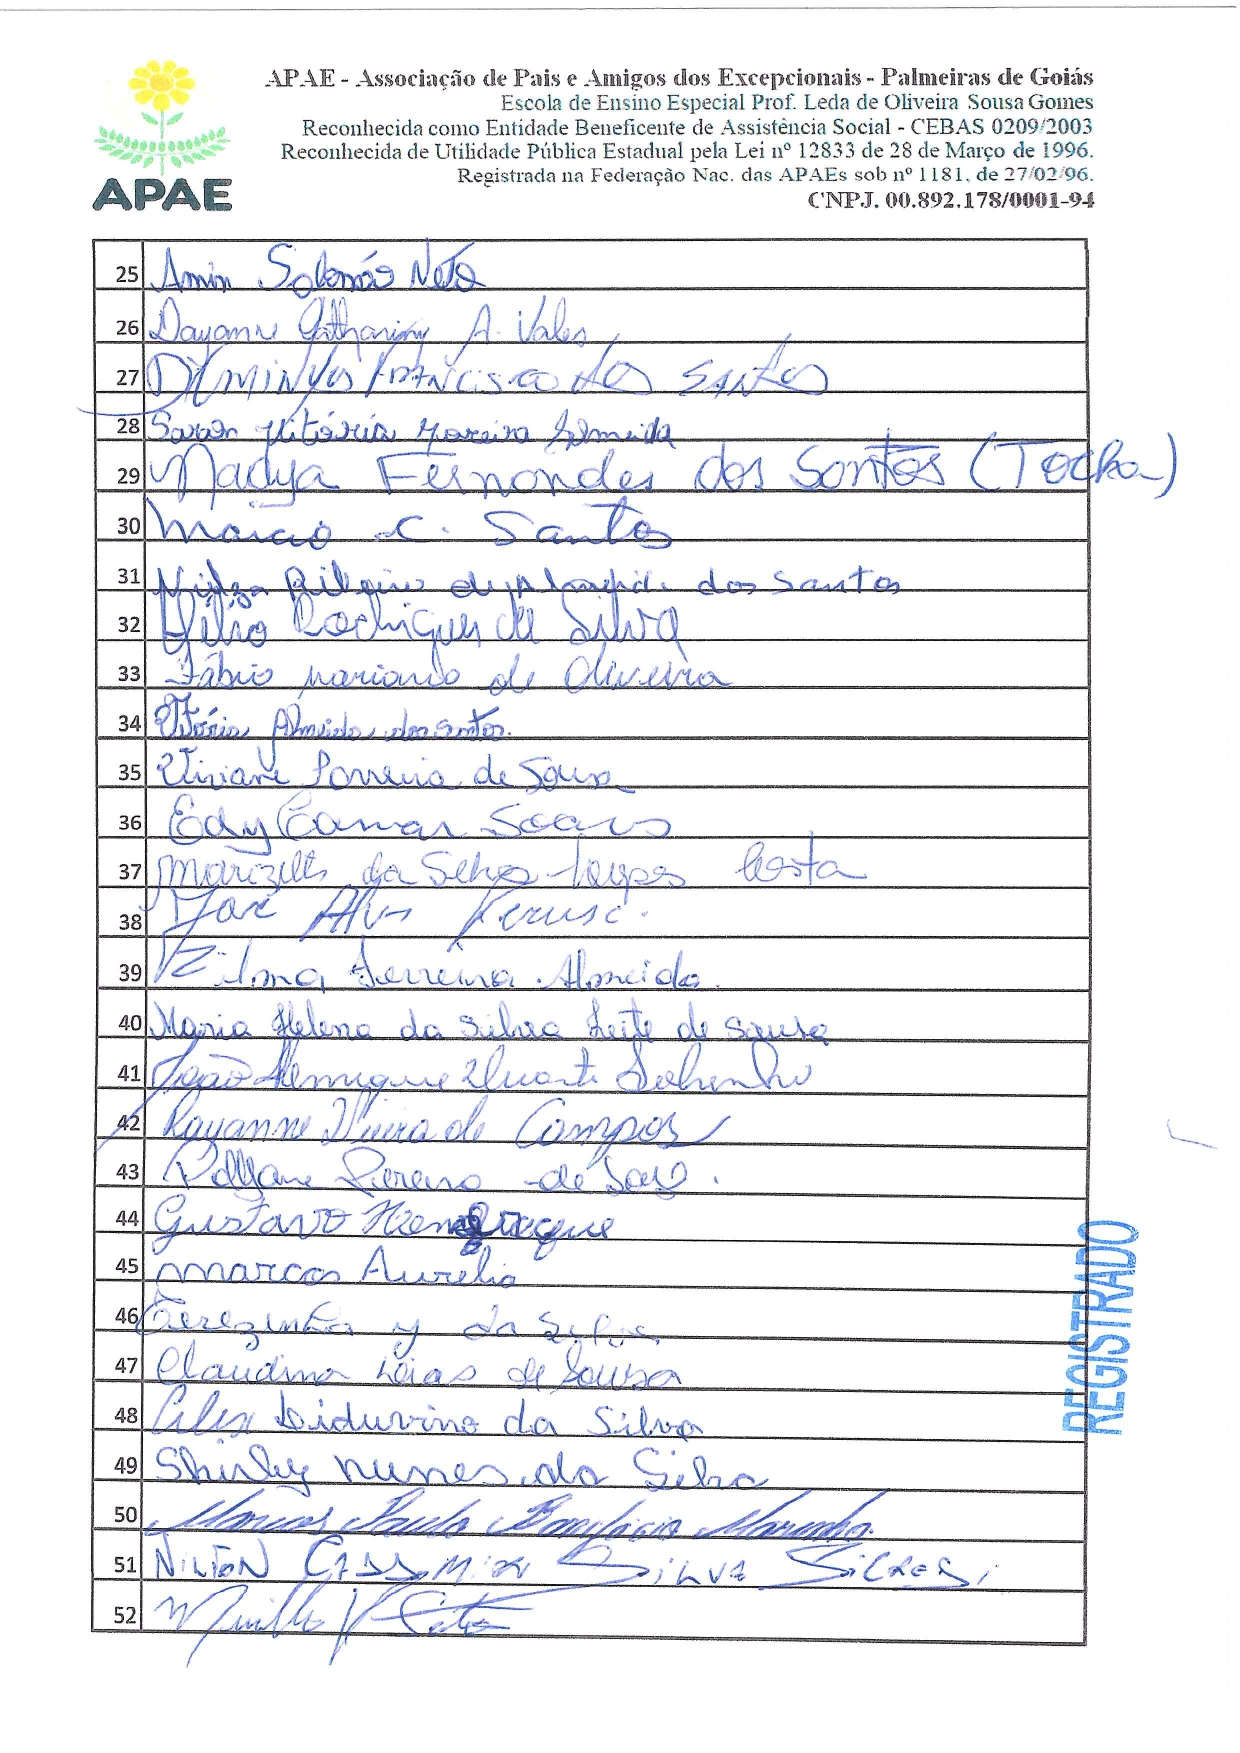 APAE - Associação de Pais e Amigos dos Excepcionais - Palmeiras de Goiás
Escola de Ensino Especial Prof. Leda de Oliveira Sousa Gomes
Reconhecida como Entidade Beneficente de Assistência Social - CEBAS 0209/2003
Reconhecida de Utilidade Pública Estadual pela Lei nº 12833 de 28 de Março de 1996.
Registrada na Federação Nac. das APAEs sob nº 1181, de 27/02/96.
CNPJ. 00.892.178/0001-94
APAE
25 Amin Salomão Neto
26 Dayanne A. Vales
27 Francisco dos Santos
28 Sarah Vitória Moreira Almeida
29 Nadya Fernandes dos Santos (Tocha)
30 Marcio C. Santos
31 Ribeiro de Almeida dos Santos
32 Hélio Rodrigues de Silva
33 Fábio Mariano de Oliveira
34 Vitória Almeida dos Santos.
35 Viviane Ferreira de Sousa
36 Edy Eamar Soares
37 da Silva Lopes Costa
38 José Alves
39 Zilma Ferreira Almeida.
40 Maria Helena da Silva Leite de Sousa
41 João Henrique Duarte Sobrinho
42 Rayanne Vieira de Campos
43 Pereira de
44 Gustavo Henrique
45 Marcos Aurelio
46 Terezinha da Silva
47 Claudina de Sousa
48 da Silva
49 Shirley Nunes da Silva
50 Marcos Paulo Bonifácio Marinho.
51 Nilton Silva
52
REGISTRADO